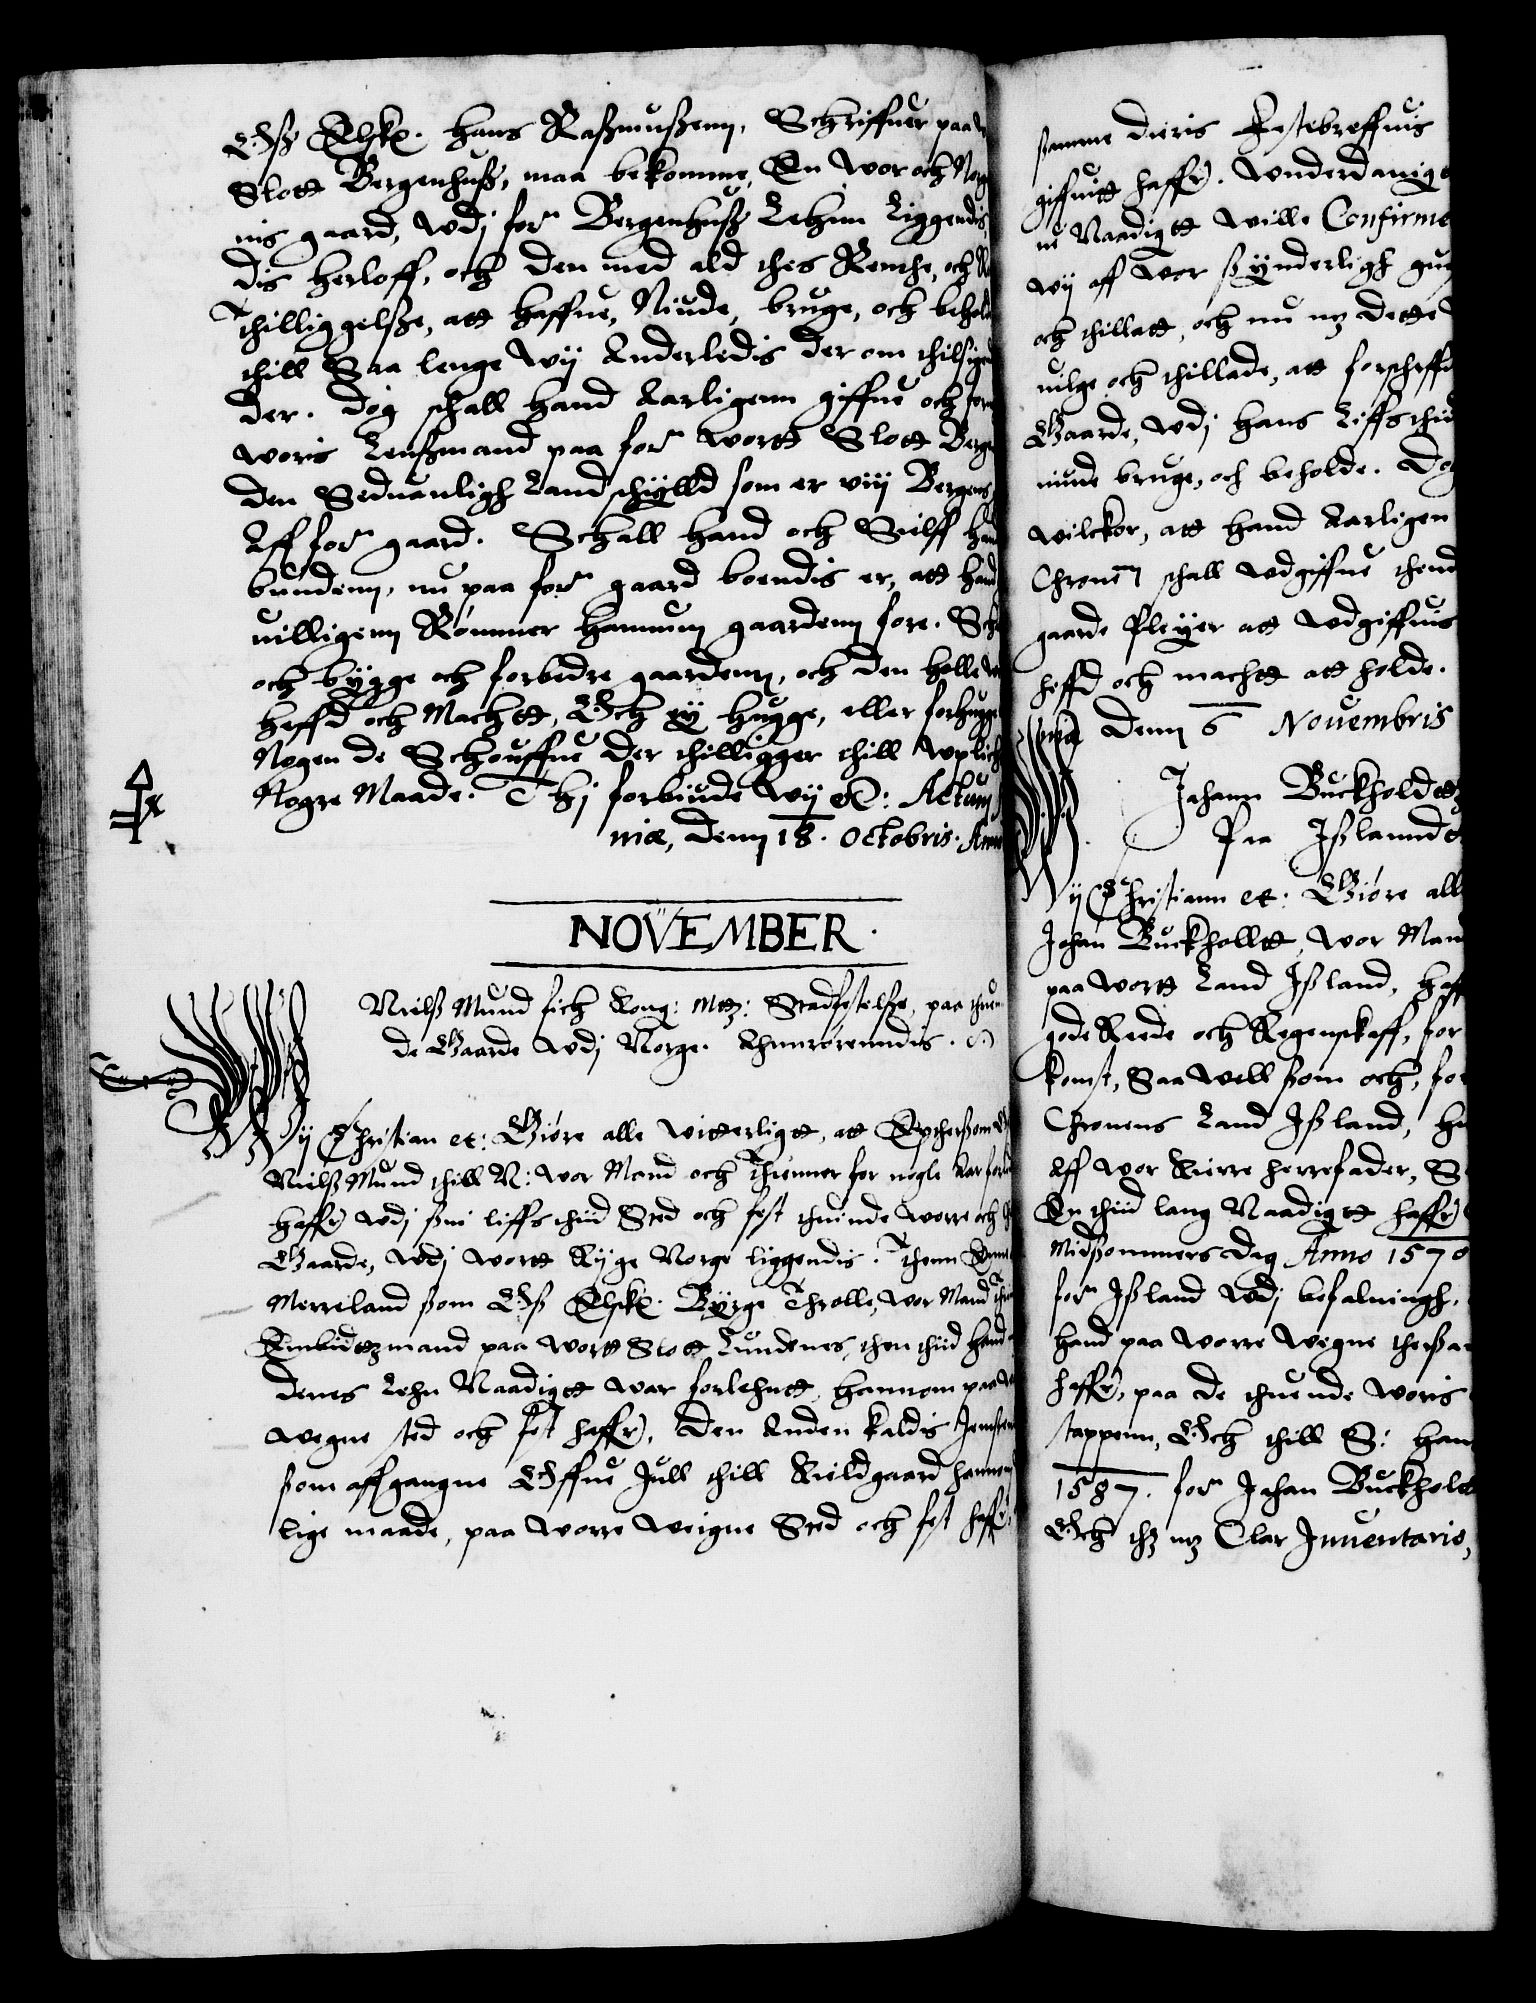 Oß Elske. Hans Raßmußenn, Schriffuer paa
Slott Bergenhuß, maa bekomme, En wor och
nis gaard, Vdj for: Bergenhuß Lehnn Liggendis,
dis Herloff, och den med ald thes Renthe, och
Thilliggelße, att haffue, Niude, bruge, och behol
thill Saa lenge Wij Anderledis der om thilsigen
der. Dog schall hand Aarligenn giffue och for
woris Lenßmand paa for: wortt Slott Berg
den Seduanligh Landschÿlld som er viij Bergens
Aff for: gaard. Schall hand och Sielff
bundenn, nu paa for: gaard boendis er, att hand
uilligenn Rømmer hannum gaardenn fore. Sch
och bÿgge och forbedre gaardenn, och den holle
heffd och Machtt, Och eÿ hugge, eller forhugge
Nogen de Schouffue der thilligger thill Vplich
Nogre Maade. Thj forbiude Wij etc: Actum
niæ, denn 18. Octobris. Anno
NOVEMBER.
Nielß Mund fich Kong: Mtz: Stadfestelße, paa thuen
de Gaarde Vdj Norge. Anrørenndis.
Wij Christian et: Giøre alle witterligtt, att Eptherßom
Nielß Mund thill N: wor Mand och Thienner for nogle Aar for
haffr Vdj ßin liffs thiid Sted och fest thuinde worre och
Gaarde, Vdj wortt Rÿge Norge liggendis. Thenn
Merreland ßom Oß Elske. Bÿrge Throlle, wor Mand
Embidtzmand paa wortt Slott Lundenes, then thid hand
denes Lehn Naadigtt war forlehntt, hannom paa
wegne sted och fest haffr, Den Anden kaldis
ßom affgangne Offue Jull thill Kieldgaard hannom
lige maade, paa worre weigne Sted och fest haffr
ßamme deris Festebreffuis
giffuitt haffr. Vnderdanigst
ne Naadigtt wille Confirme
wij aff wor ßÿnderligh gu
och thillatt, och nu mz dette
uilge och thillade, att forschreffd
Gaarde, Vdj hans Liffs thid
niude bruge, och beholde. Dog
wilckor, att hand Aarligen
Chronen schall Vdgiffue thend
gaarde Pleÿer att Vdgiffuis
heffd och machtt att holde.
denn 6 Novembris
Johann Buckholdtt
Paa Ißlanndt
Wij Christiann et: Giøre all
Johan Buckholltt, wor Mand
paa wortt Land Ißland, haff
gode Rede och Regenskaff, for
komst, Saa well ßom och, for
Chronens Land Ißland, h
Aff wor Kierre herrefader, S
En thiid lang Naadigtt haffr
Midßommers dag Anno 1570
for: Ißland Vdj befalningh,
hand paa worre wegne therßa
haffr, paa de thuende woris
stappenn, Och thill S: Han
1587. for: Johan Buckholtt
Och thz mz Clar Inuentario,